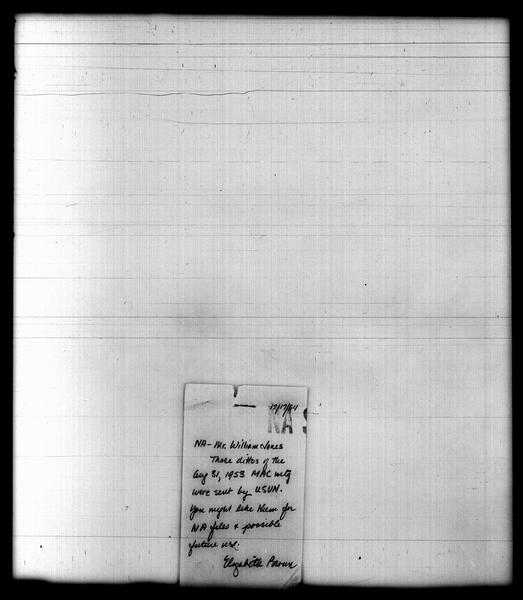 12/17/54
NA
NA - Mr. William Jones
These dittos of the
Aug 31, 1953 MAC mtg
were sent by USUN.
You might like them for
NA files & possible
future use.
Elizabeth